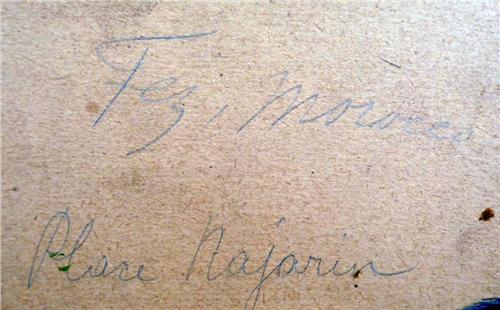 Fez, Morocco
Place Najarin